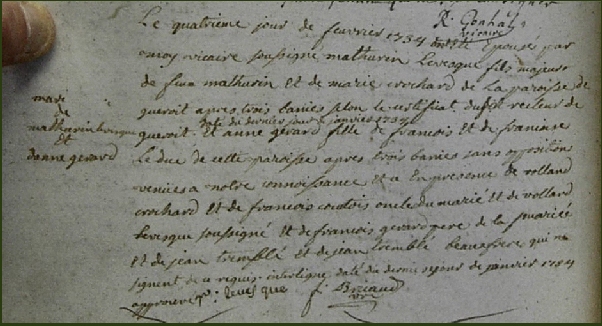 R. Gouhal
vicaire
Le quatrieme jour de fevrier 1754 ont été Epousés par
moy vicaire soussigné mathurin Levesque fils majeur
de feu mathurin et de marie crochard de La paroisse de
gueroit apres trois banies selon le certifiat dudit recteur de
daté du dernier jour de janvier 1754
gueroit. et anne gerard fille de francois et de francoise
Le duc de cette paroisse apres trois banies sans opposition
venües a notre connoissance et a En presence de rolland
crochard et de francois courtois oncle du marié et de rolland
Levesque soussigné et de francois gerard pere de la mariée
et de jean tremblé et de jean tremblé beaufrere qui ne
signent de ce requis interligne daté du dernier jour de janvier 1754
approuvé levesque f. Briand
mari
de
mathurin levesque
et
danne gerard